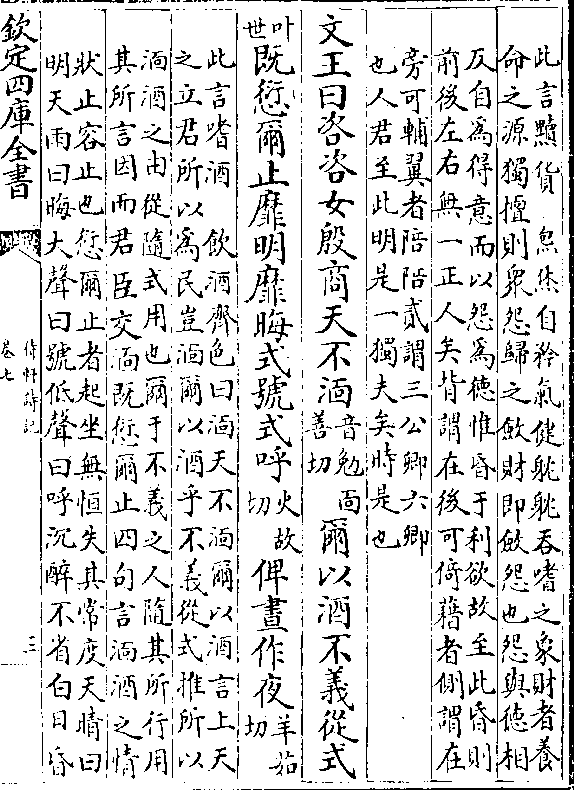 此言黷貨　炰烋自矜氣健躭躭吞嗜之象財者養
命之源獨擅則衆怨歸之斂財即斂怨也怨與徳相
反自爲得意而以怨爲徳惟昏于利欲故至此昏則
前後左右無一正人矣背謂在後可倚藉者側謂在
旁可輔翼者陪陪貳謂三公卿六卿
也人君至此明是一獨夫矣時是也
文王曰咨咨女殷商天不湎音勉面善切爾以酒不義從式
叶世既愆爾止靡明靡晦式號式呼火故切俾晝作夜羊茹切
此言嗜酒　飲酒齊色曰湎天不湎爾以酒言上天
之立君所以爲民豈湎爾以酒乎不義從式推所以
湎酒之由從隨式用也爾于不義之人隨其所行用
其所言因而君臣交湎既愆爾止四句言湎酒之情
狀止容止也愆爾止者起坐無恒失其常度天晴曰
明天雨曰晦大聲曰號低聲曰呼沉醉不省白日昏
欽定四庫全書
待軒詩記
卷七
三